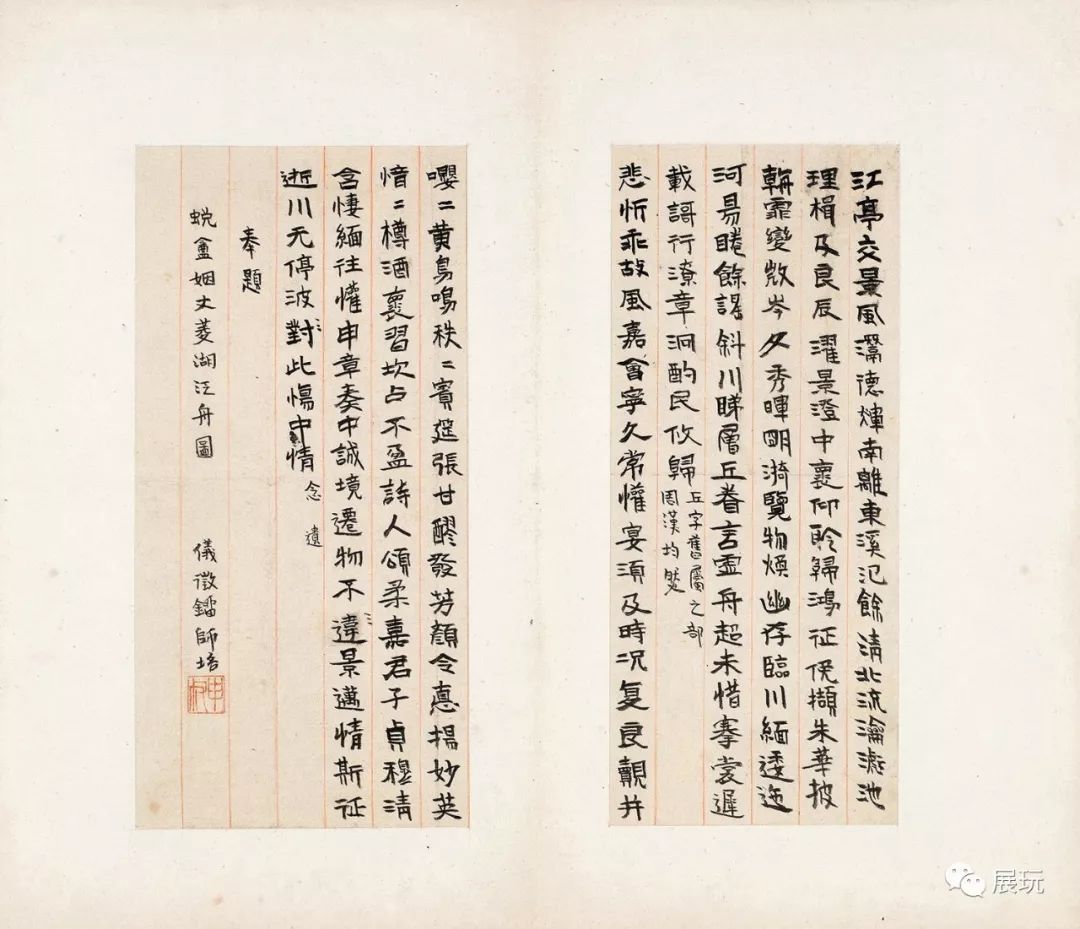 江亭交景風灊德煇南離東溪氾餘淸北流瀹滮池
理楫及良辰濯景澄中襄仰聆歸鴻征俛擷朱華披
輧霏變㪚岑夕秀暉明漪覽物煥幽存臨川緬逶迤
河昜睠餘謡斜川睇層丘眷言雲舟超未惜搴裳遲
載謌行潦章泂酌民攸歸
丘字舊屬之部
周漢均然
悲忻乖故風嘉會寧久常懽宴須及時况复良覿幷
嚶二黄鳥鳴秩二賓筵張甘醪發芳顔令悳揚妙英
愔二樽酒襄習坎占不盈詩人頌柔嘉君子貞穆淸
含悽緬往懽申章奏中誠境遷物不違景邁情斯征
逝川无停波對此傷中情
念 遺
奉題
蜕盫姻丈菱湖泛舟圖
儀徵鎦師培
申叔
展玩